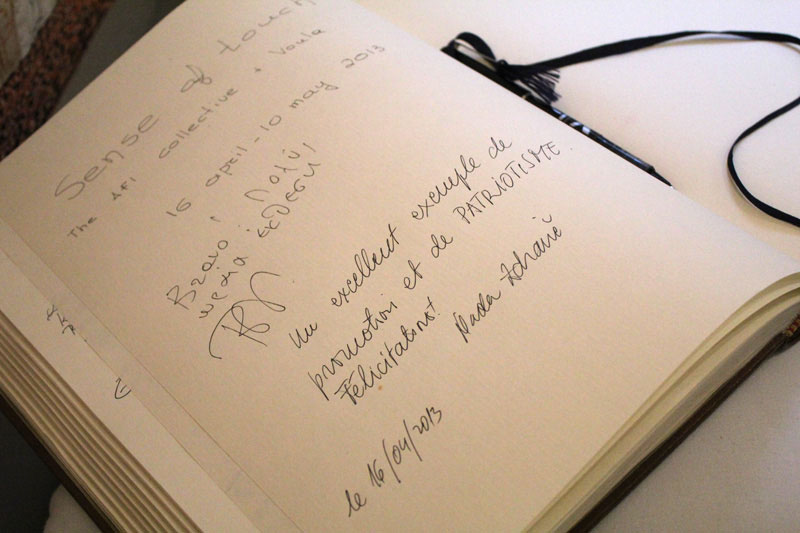 Sense of touch
The AFI collective + Voula
16 april - 10 may 2013
Bravo! Πολύ
ωραία ΕΚΘΕΣΗ
Un excellent exemple de
promotion et de PATRIOTISME.
Félicitations!
le 16/04/2013